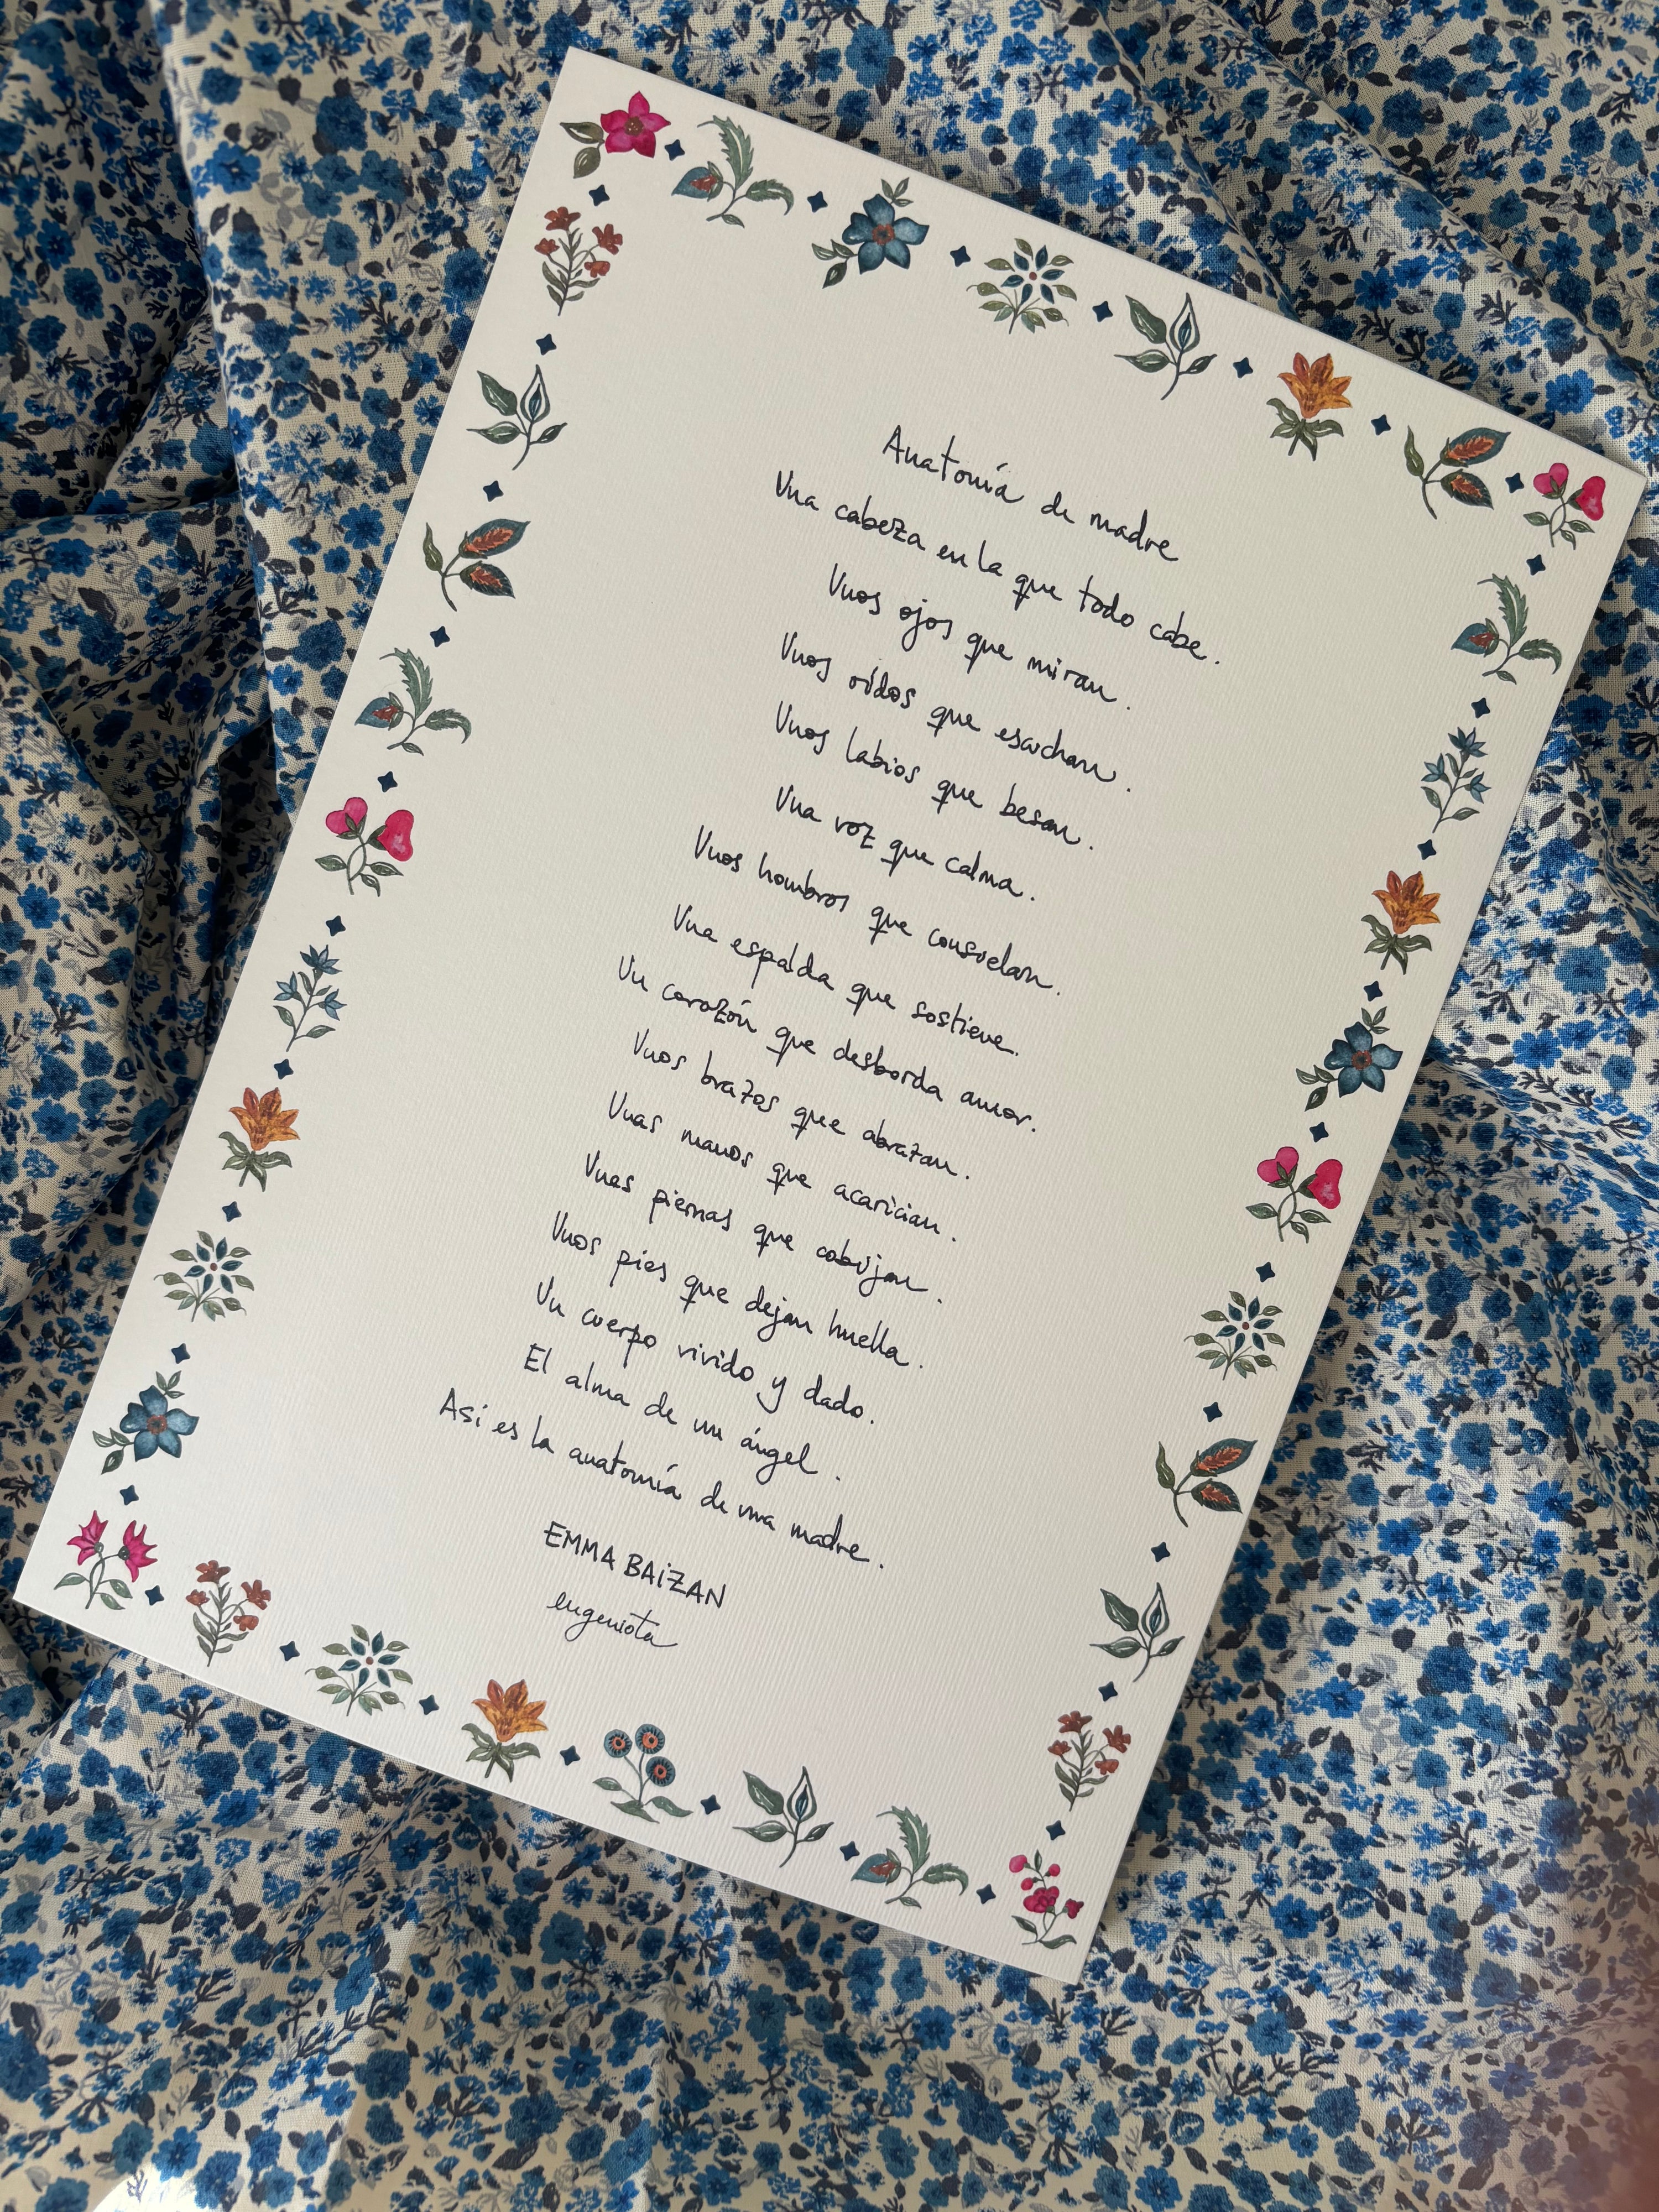 Anatomía de madre
Una cabeza en la que todo cabe.
Unos ojos que miran.
Unos oídos que escuchan.
Unos labios que besan.
Una voz que calma.
Unos hombros que consuelan.
Una espalda que sostiene.
Un corazón que desborda amor.
Unos brazos que abrazan.
Unas manos que acarician.
Unas piernas que cobijan.
Unos pies que dejan huella.
Un cuerpo vivido y dado.
El alma de un ángel.
Así es la anatomía de una madre.
EMMA BAIZAN
eugeniota